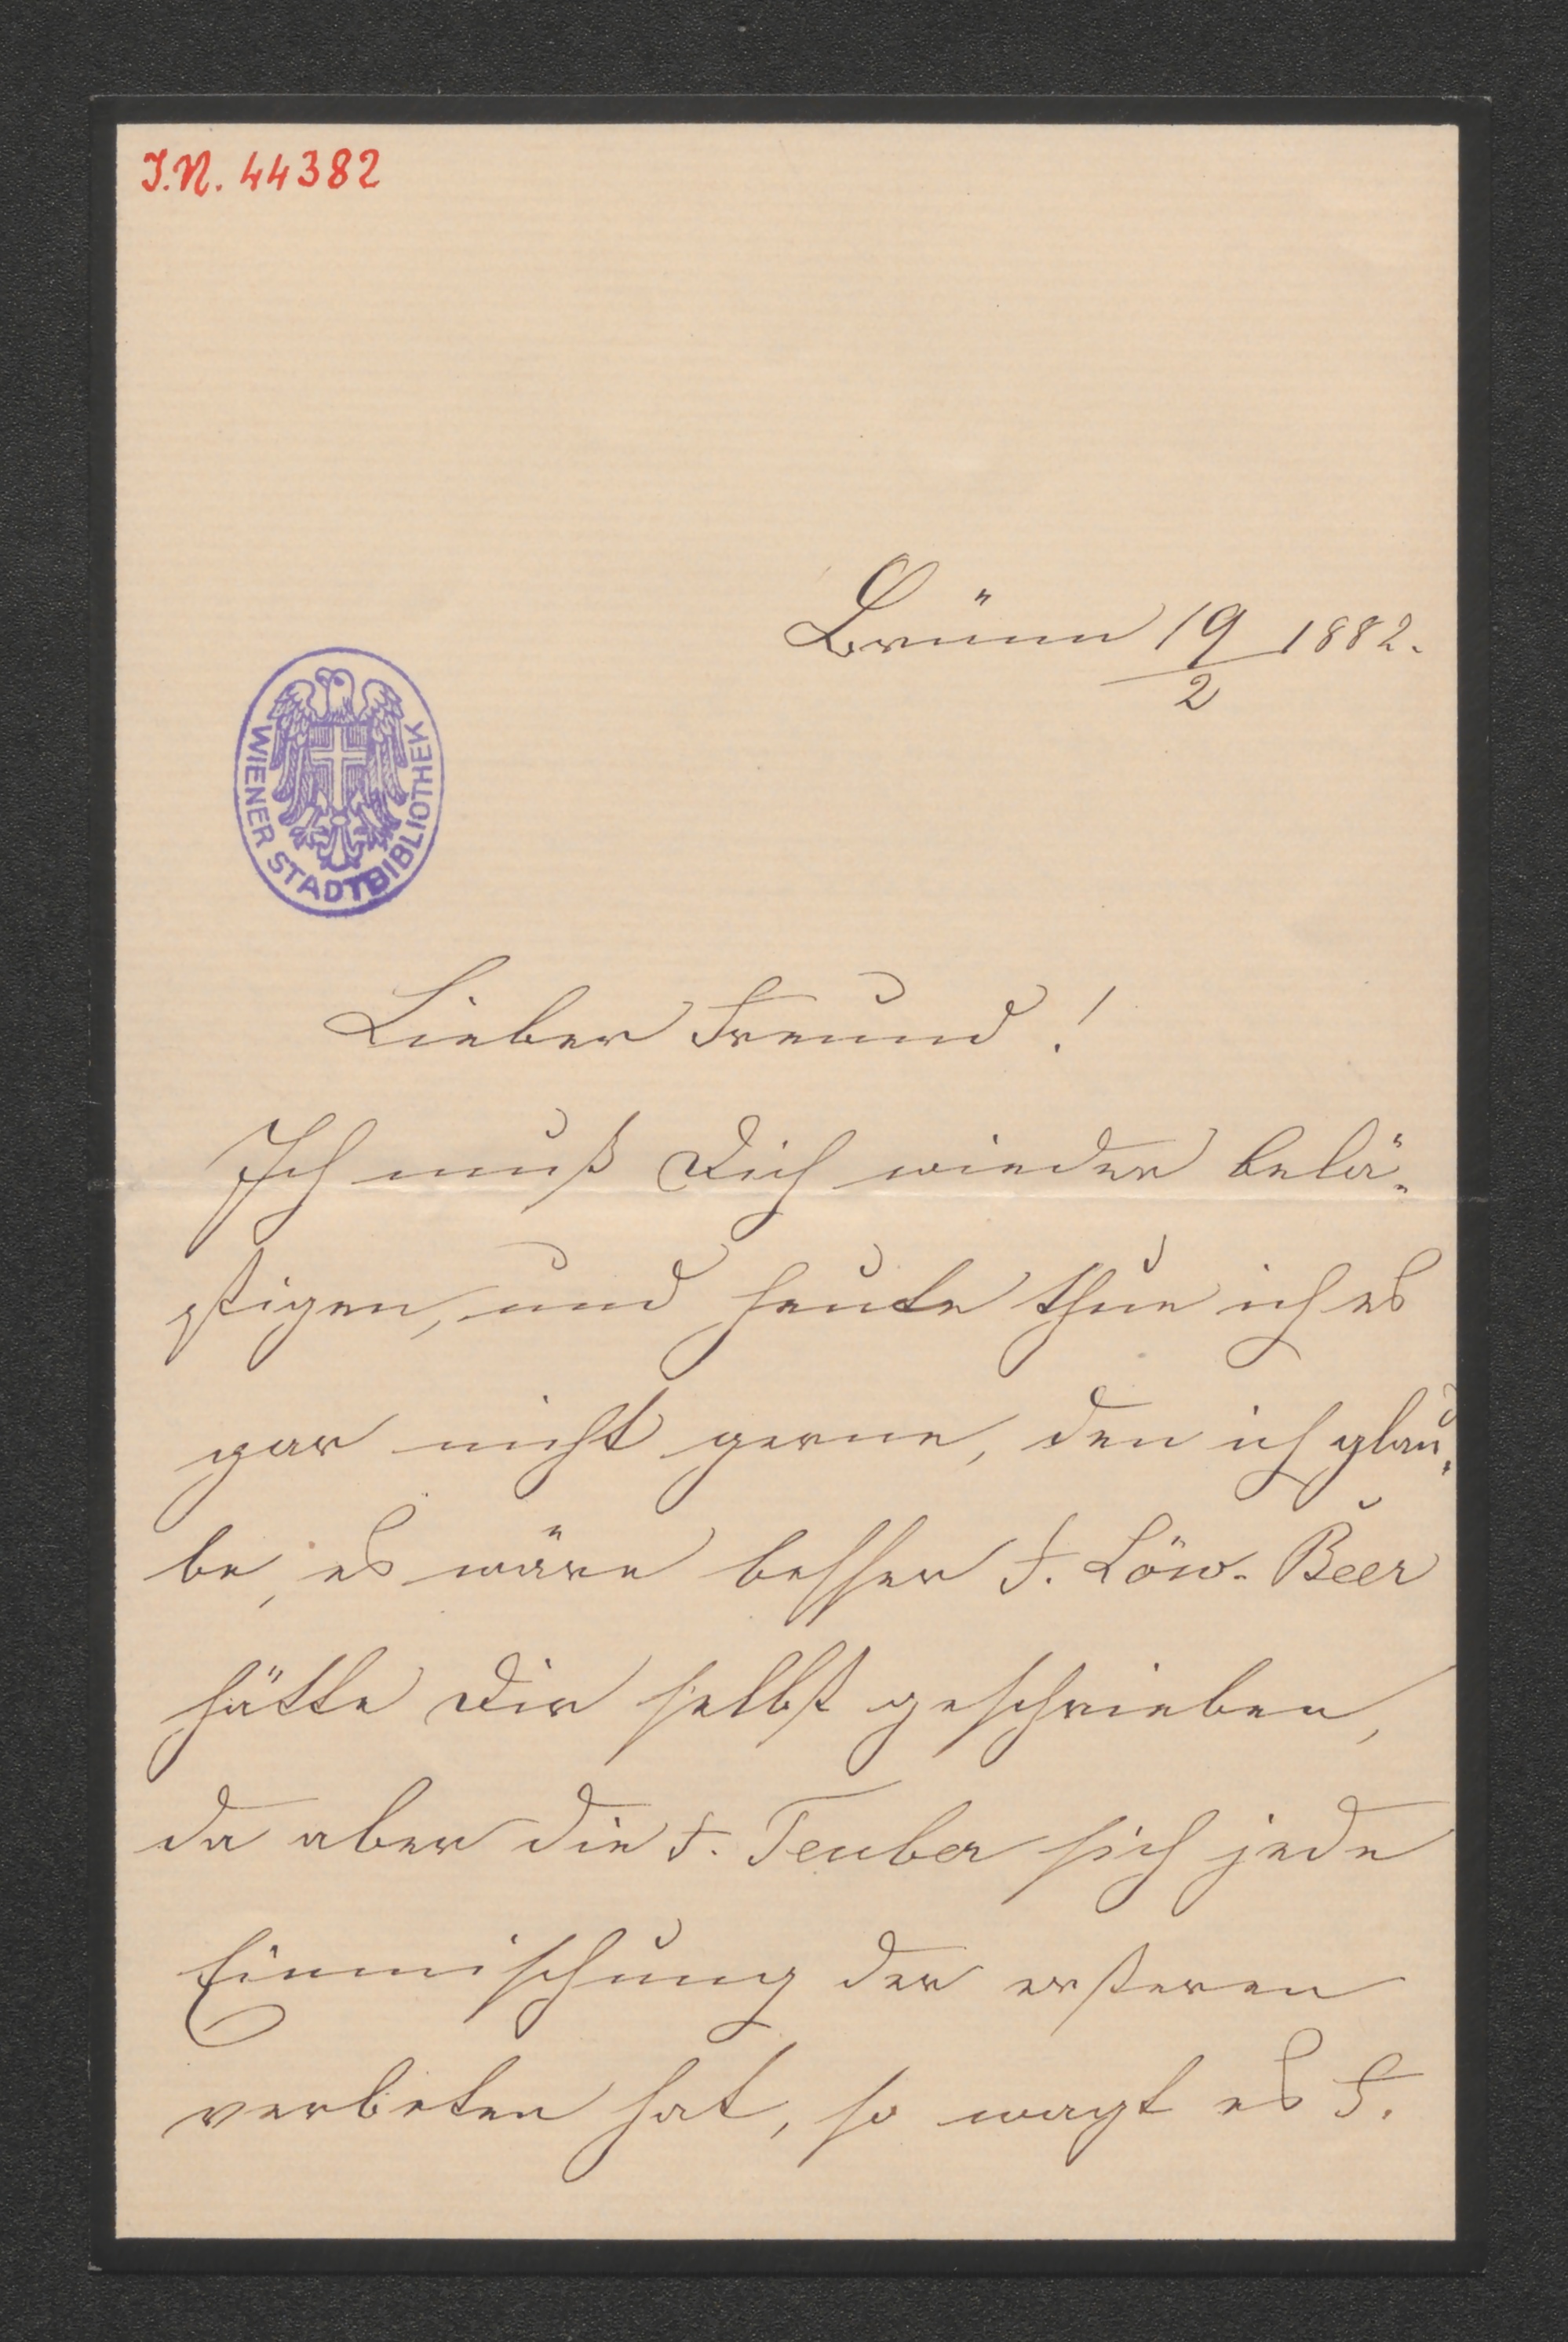 I.N. 44382
Brünn 19/2 1882.
WIENER STADTBIBLIOTHEK
Lieber Freund!
Ich muß Dich wieder belä-
stigen, und heute thue ich es
gar nicht gerne, den ich glau-
be, es wäre besser F. Löw-Beer
hätte Dir selbst geschrieben,
da aber die F. Teuber sich jede
Einmischung der ersteren
verbeten hat, so wagt es F.